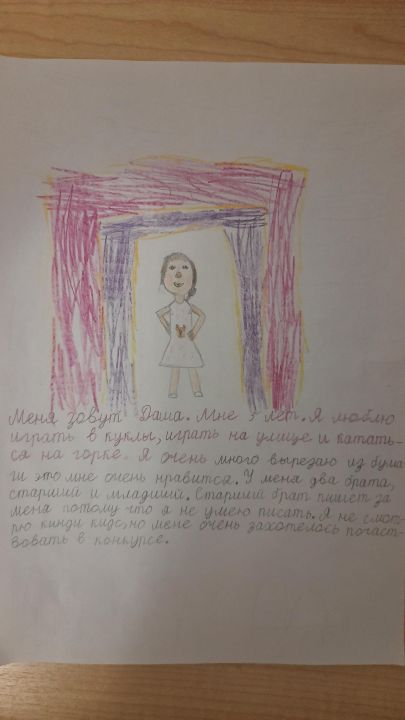 Меня зовут Даша. Мне 5 лет. Я люблю
играть в куклы, играть на улице и катать-
ся на горке. Я очень много вырезаю из бума
ги это мне очень нравится. У меня два брата,
старший и младший. Старший брат пишет за
меня потому что я не умею писать. Я не смот-
рю кинди кидс, но мене очень захотелось почаст-
вовать в конкурсе.